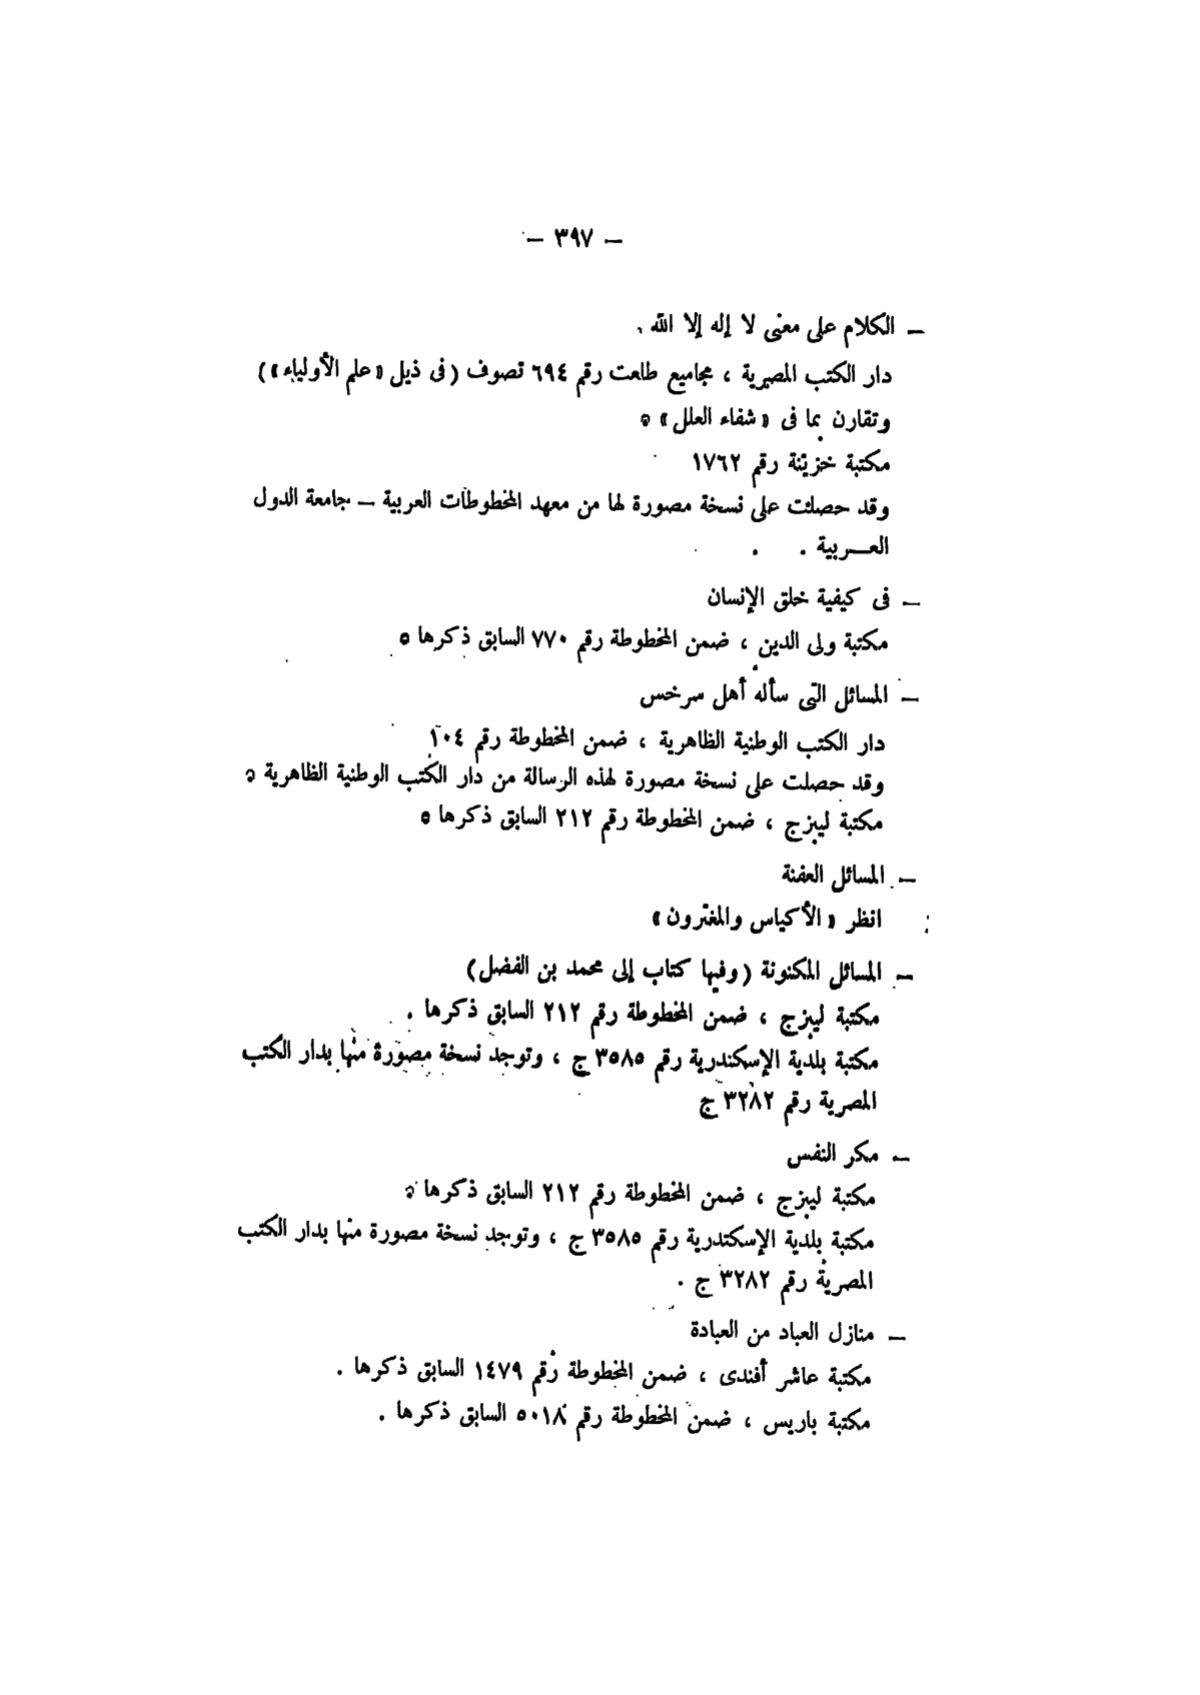 — ٣٩٧ —
— الكلام على معنى لا إله إلا الله .
دار الكتب المصرية ، مجاميع طلعت رقم ٦٩٤ تصوف (فى ذيل «علم الأولياء»)
وتقارن بما فى «شفاء العلل» .
مكتبة خزينة رقم ١٧٦٢
وقد حصلت على نسخة مصورة لها من معهد المخطوطات العربية — جامعة الدول
العــربية .
— فى كيفية خلق الإنسان
مكتبة ولى الدين ، ضمن المخطوطة رقم ٧٧٠ السابق ذكرها .
— المسائل التى سأله أهل سرخس
دار الكتب الوطنية الظاهرية ، ضمن المخطوطة رقم ١٠٤
وقد حصلت على نسخة مصورة لهذه الرسالة من دار الكتب الوطنية الظاهرية .
مكتبة ليبزج ، ضمن المخطوطة رقم ٢١٢ السابق ذكرها .
— المسائل العفنة
انظر «الأكياس والمغترون»
— المسائل المكنونة (وفيها كتاب إلى محمد بن الفضل)
مكتبة ليبزج ، ضمن المخطوطة رقم ٢١٢ السابق ذكرها .
مكتبة بلدية الإسكندرية رقم ٣٥٨٥ ج ، وتوجد نسخة مصورة منها بدار الكتب
المصرية رقم ٣٢٨٢ ج
— مكر النفس
مكتبة ليبزج ، ضمن المخطوطة رقم ٢١٢ السابق ذكرها .
مكتبة بلدية الإسكندرية رقم ٣٥٨٥ ج ، وتوجد نسخة مصورة منها بدار الكتب
المصرية رقم ٣٢٨٢ ج .
— منازل العباد من العبادة
مكتبة عاشر أفندى ، ضمن المخطوطة رقم ١٤٧٩ السابق ذكرها .
مكتبة باريس ، ضمن المخطوطة رقم ٥٠١٨ السابق ذكرها .